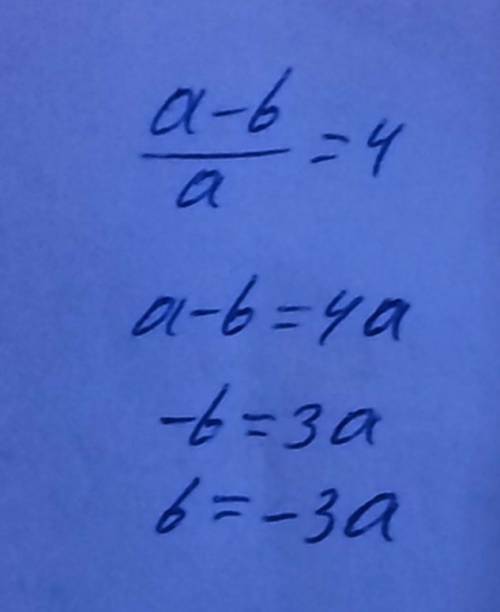 a-b
a = 4
a-b=4a
-b=3a
b=-3a